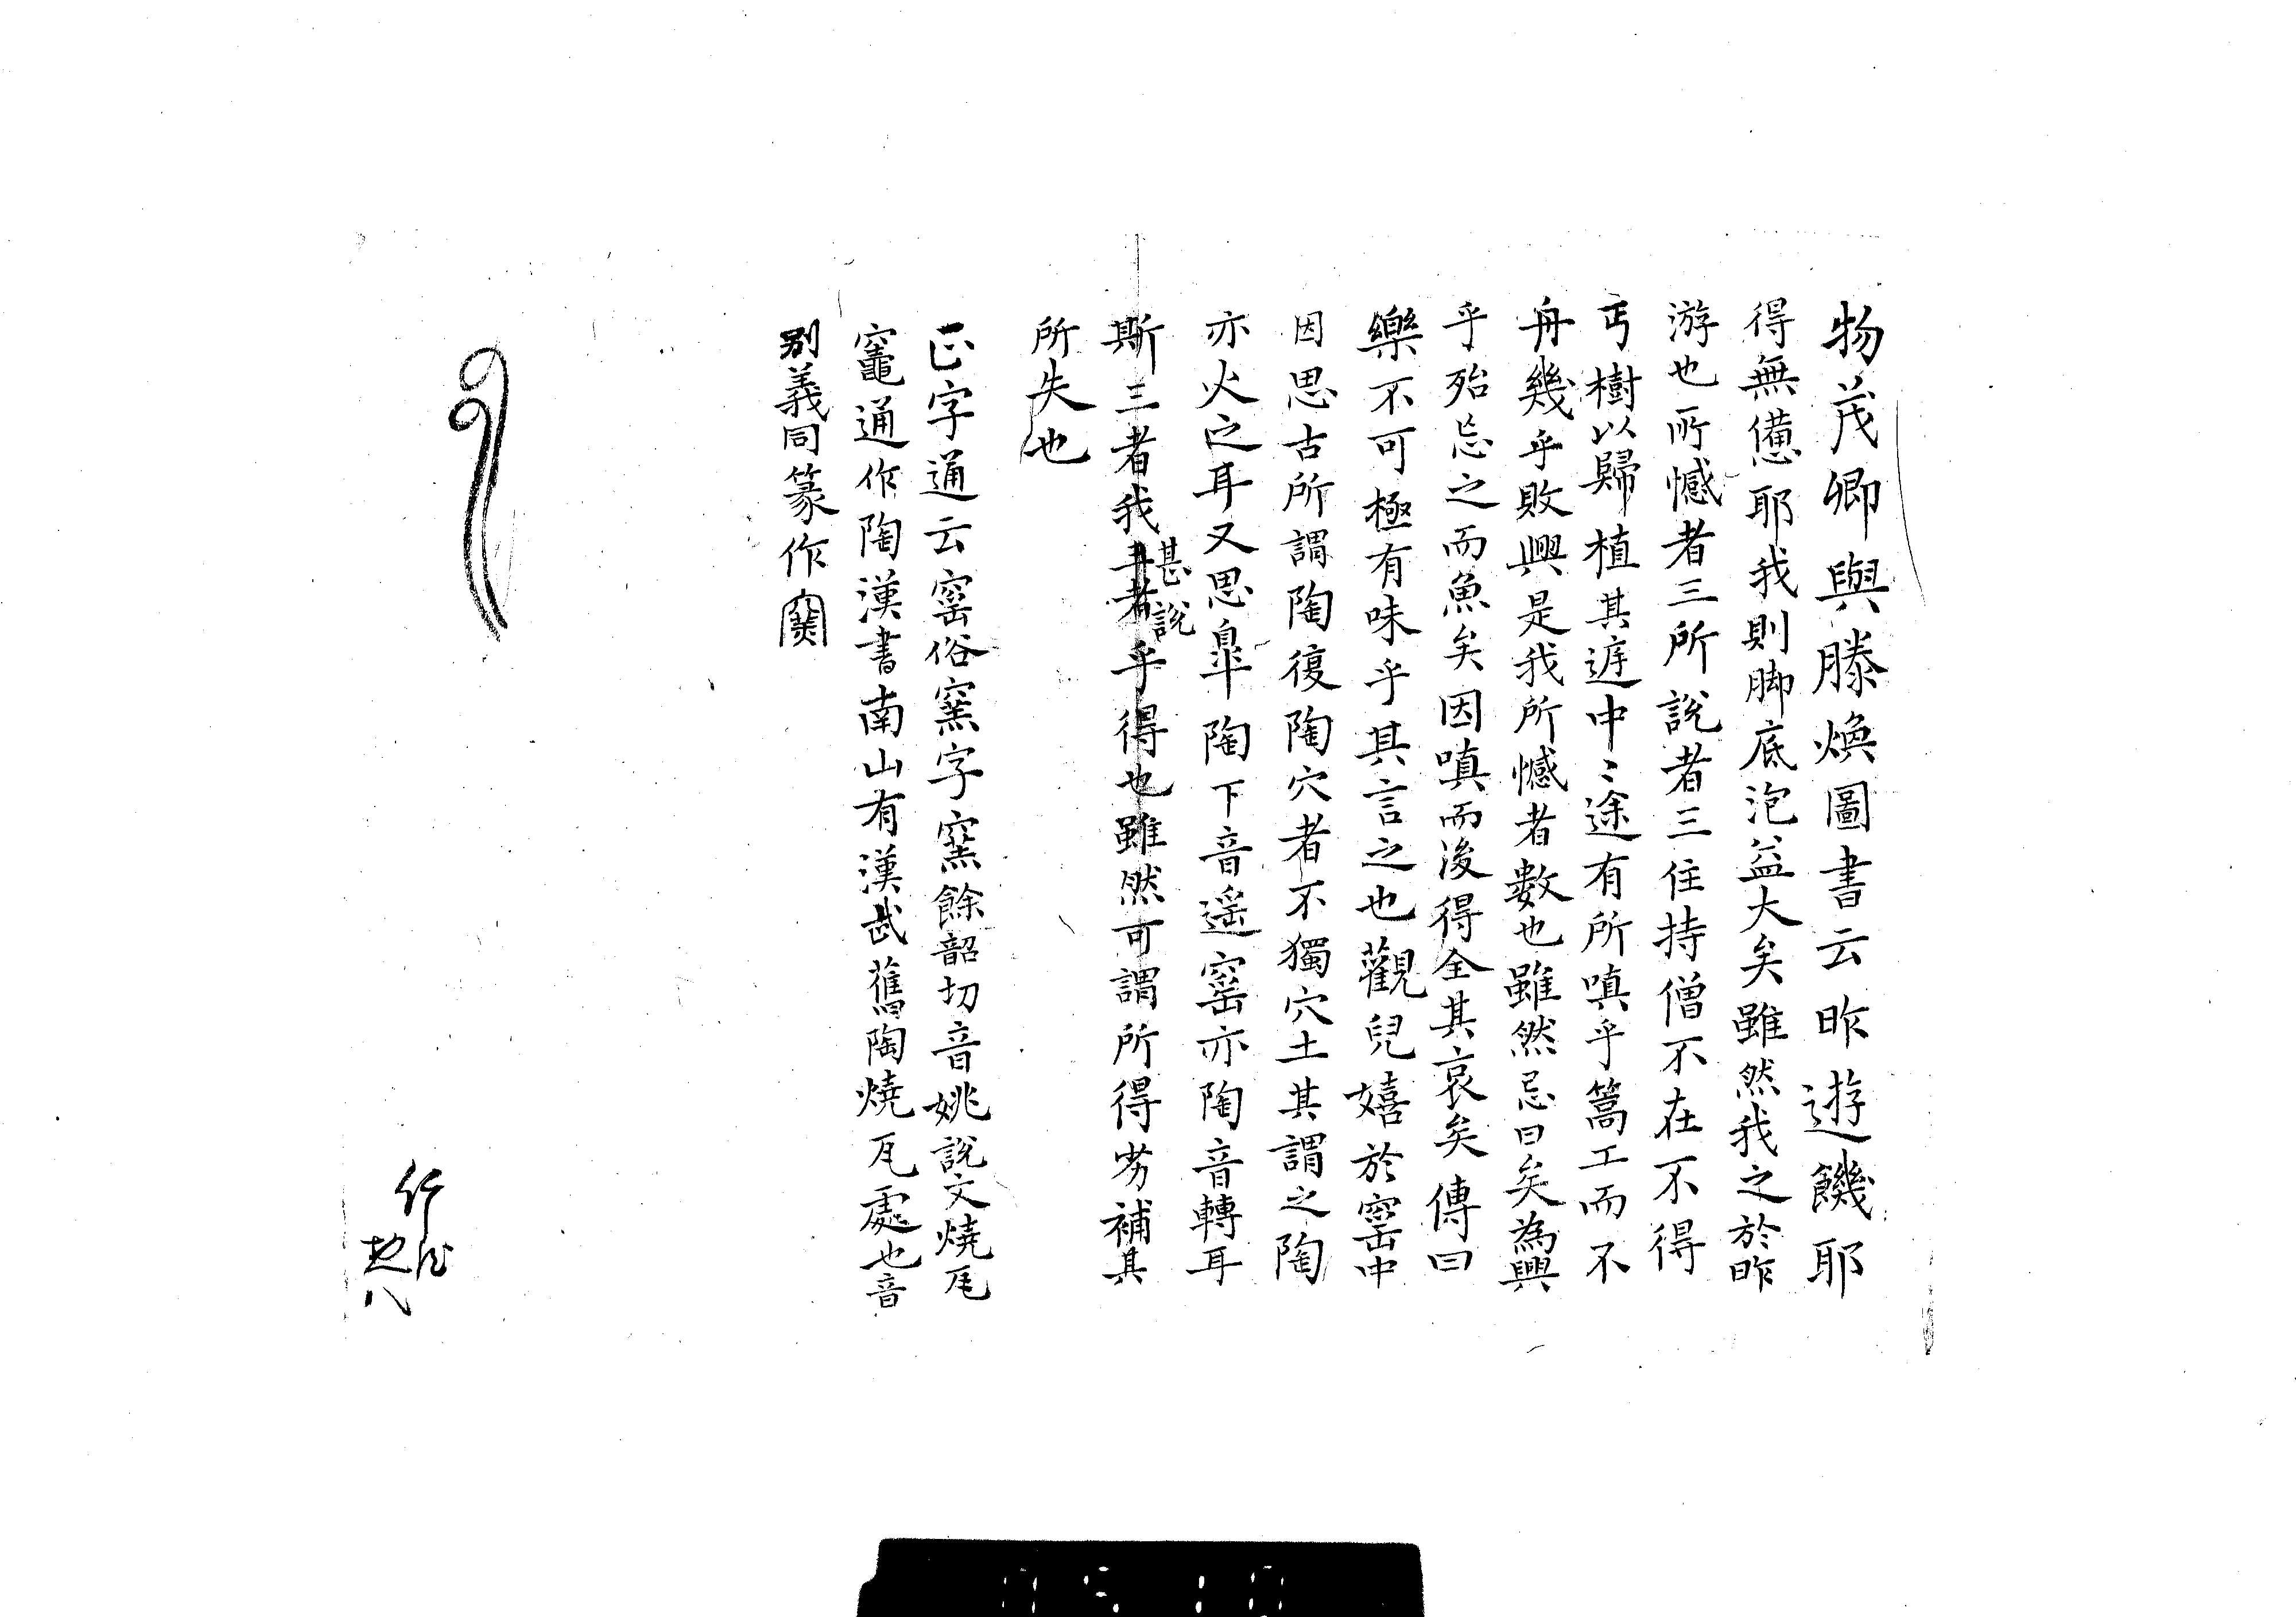 物茂卿與滕煥圖書云昨遊饑耶
得無憊耶我則脚底泡益大矣雖然我之於昨
游也所憾者三所說者三住持僧不在不得
丐樹以歸植其遅中〻途有所嗔乎篙工而不
舟幾乎敗興是我所憾者數也雖然忌曰矣為興
乎殆忘之而魚矣因嗔而後得全其哀矣傳曰
樂不可極有味乎其言之也觀兒嬉於窑中
因思古所謂陶復陶穴者不獨穴土其謂之陶
亦火之耳又思臯陶下音遥窑亦陶音轉耳
斯三者我甚說乎得也雖然可謂所得劣補其
所失也
正字通云窑俗窯字窯餘韶切音姚說文燒瓦
竈通作陶漢書南山有漢武舊陶燒瓦處也音
别義同篆作